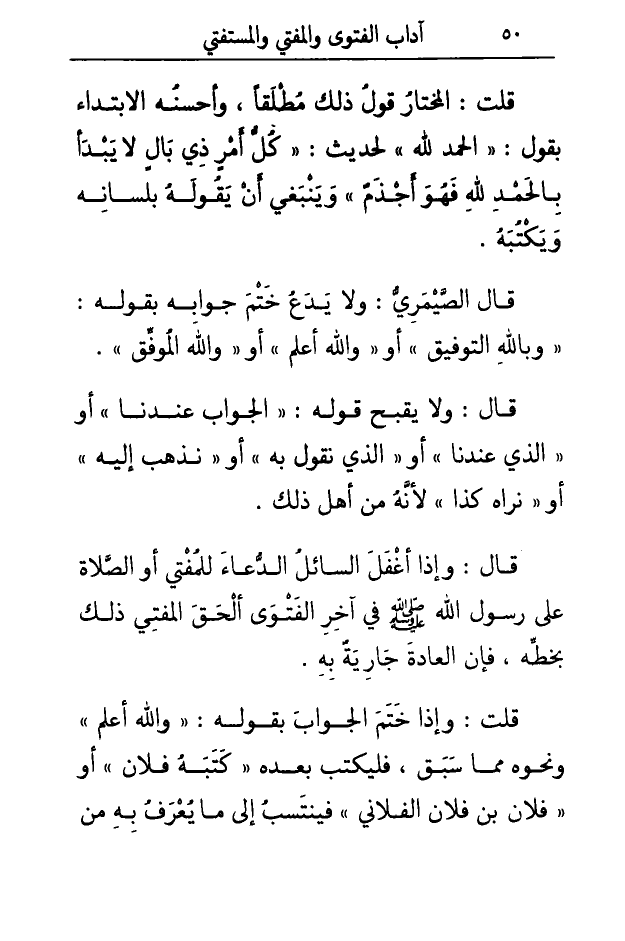 ٥٠ آداب الفتوى والمفتي والمستفتي
قلت : المختارُ قولُ ذلك مُطْلَقاً ، وأحسنُه الابتداء
بقول : « الحمد لله » لحديث : « كُلُّ أَمْرٍ ذِي بَالٍ لا يَبْدَأُ
بِالحَمْدِ للهِ فَهُوَ أَجْذَمٌ » وَيَنْبَغي أَنْ يَقُولَهُ بلسانِه
وَيَكْتُبَهُ .
قال الصَّيْمَرِيُّ : ولا يَدَعُ خَتْمَ جوابِه بقوله :
« وباللهِ التوفيق » أو « والله أعلم » أو « والله المُوفِّق » .
قال : ولا يقبح قوله : « الجواب عندنا » أو
« الذي عندنا » أو « الذي نقول به » أو « نذهب إليه »
أو « نراه كذا » لأنَّهُ من أهل ذلك .
قال : وإذا أغْفَلَ السائلُ الدُّعاءَ للمُفْتي أو الصَّلاة
على رسول الله ﷺ في آخِرِ الفَتْوَى ألْحَقَ المفتِي ذلك
بخطِّه ، فإن العادةَ جَارِيَةٌ بِهِ .
قلت : وإذا خَتَمَ الجوابَ بقوله : « والله أعلم »
ونحوه مما سَبَق ، فليكتب بعده « كَتَبَهُ فلان » أو
« فلان بن فلان الفلاني » فينتَسبُ إلى ما يُعْرَفُ بِهِ من